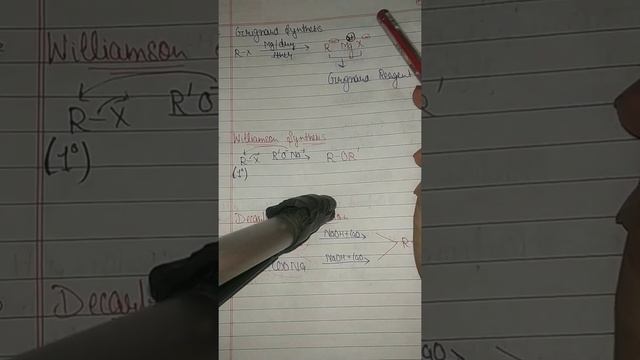 Grignard Synthesis
R-X Mg/dry ether → R Mg X
Grignard Reagent
Williamson Synthesis
R-X R'O⁻Na⁺ → R-OR'
(1°)
NaOH+CaO
COONa NaOH+CaO R-
Williamson
R-X R'O
(1°)